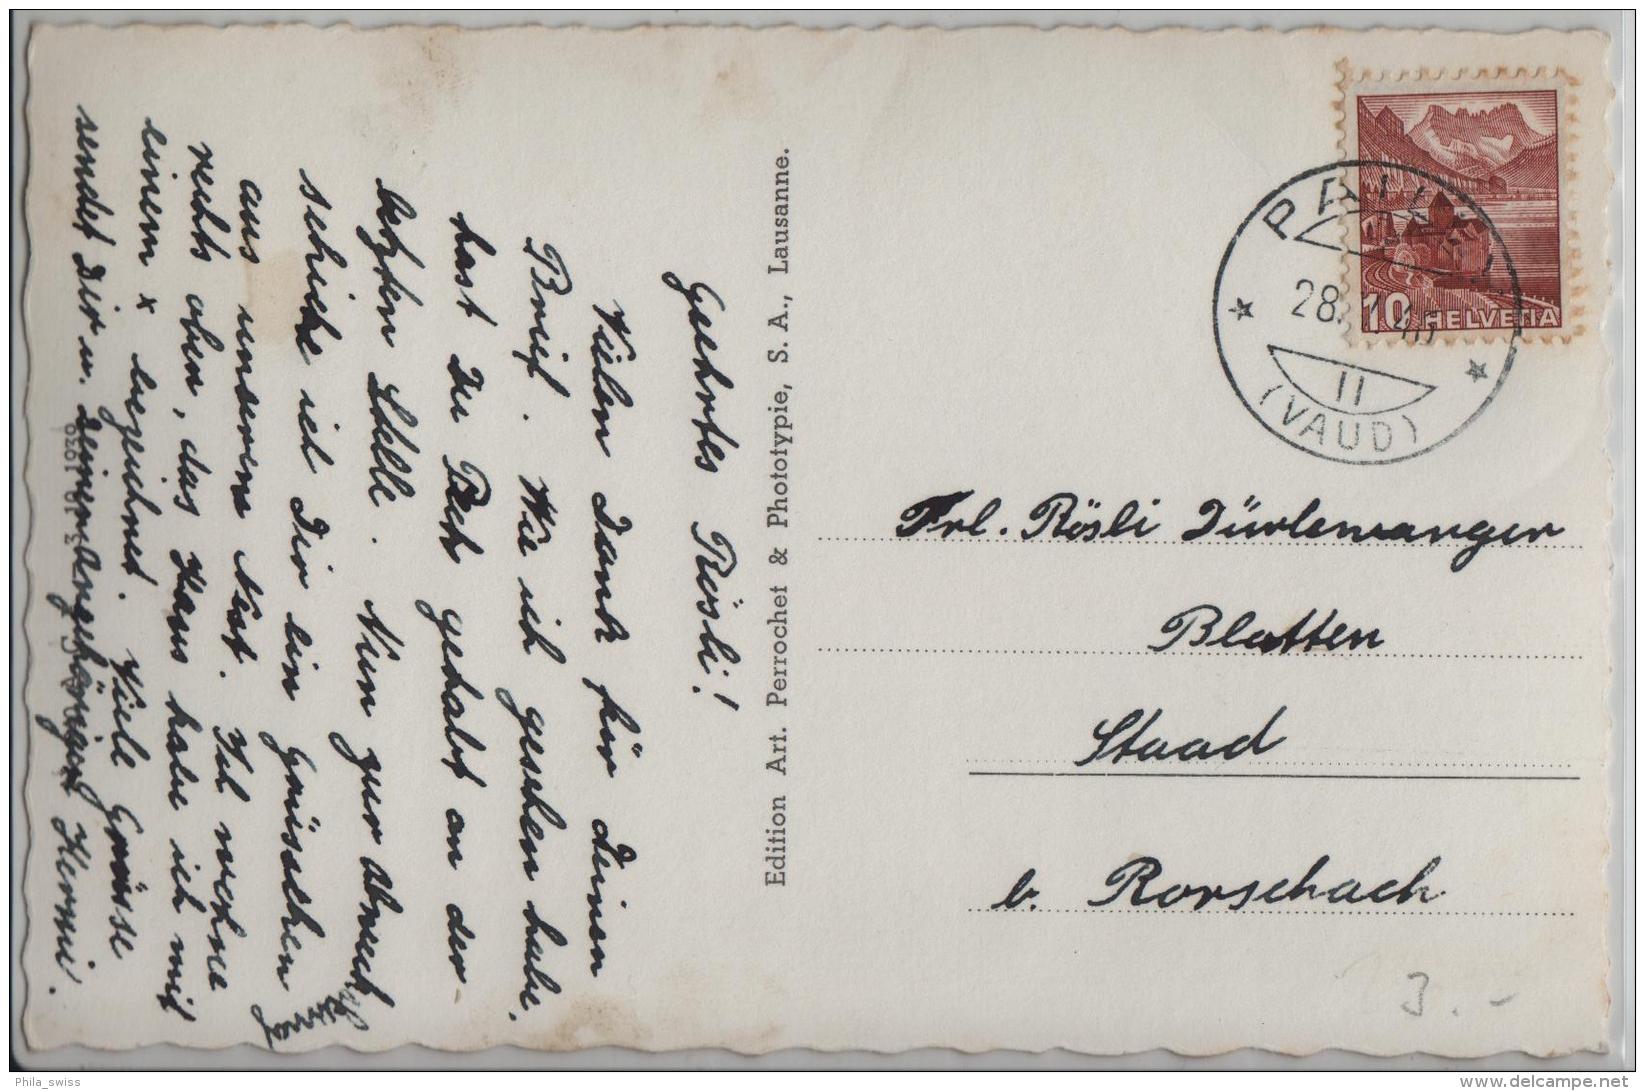 Geehrtes Rösli!
Vielen Dank für Deinen
Brief. Wie ich gesehen habe,
hast Du Pech gehabt an der
letzten Stelle. Nun zur Abwechs-
lung
schicke ich Dir ein Grüsschen
aus unserem Nest. Ich wohne
rechts oben, das Haus habe ich mit
einem x bezeichnet. Viele Grüsse
sendet Dir u. Deinen Angehörigen Hermi.
Edition Art. Perrochet & Phototypie, S. A., Lausanne.
10 HELVETIA
28. 40
II
(VAUD)
Frl. Rösli Dürlewanger
Blatten
Staad
b. Rorschach
3.-
Phila_swiss
www.delcampe.net